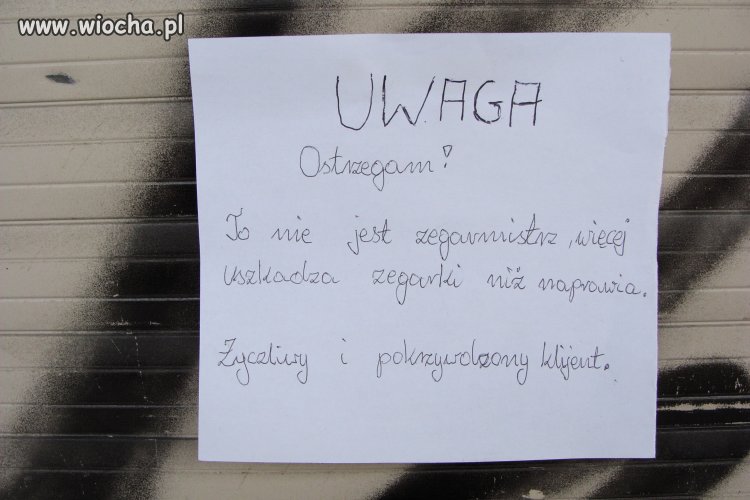 www.wiocha.pl
UWAGA
Ostrzegam!
To nie jest zegarmistrz, więcej
uszkadza zegarki niż naprawia.
Życzliwy i pokrzywdzony klijent.